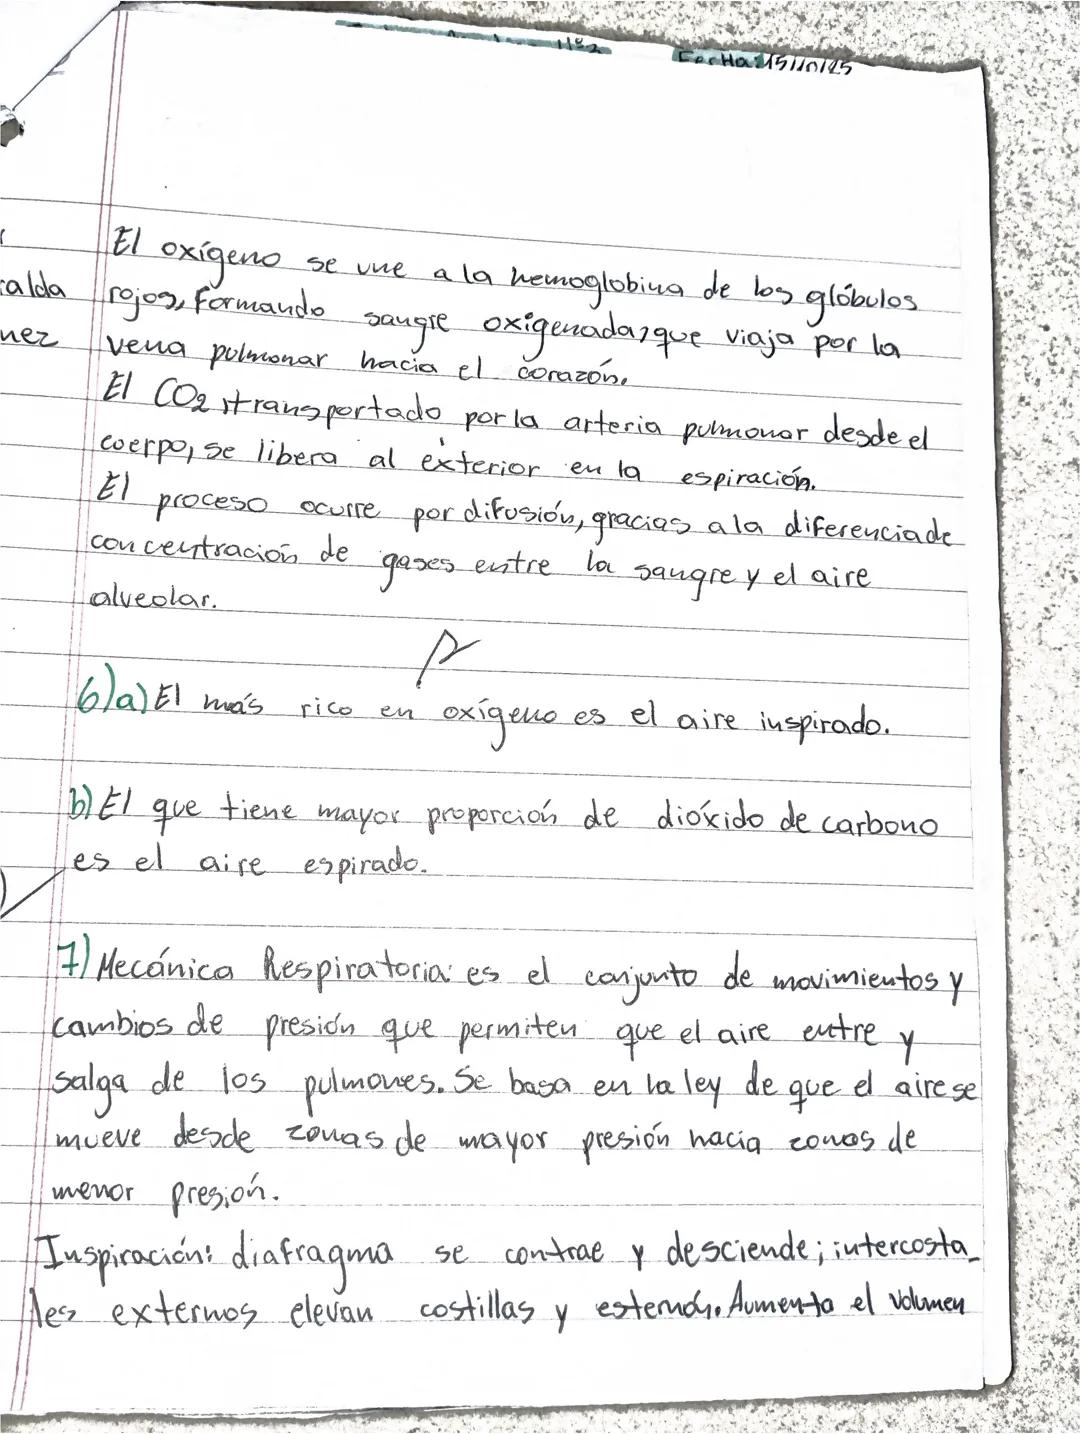 Nº2 Fecha: 15/10/25
El oxígeno se une a la hemoglobina de los glóbulos
rojos, formando sangre oxigenada, que viaja por la
vena pulmonar hacia el corazón.
El CO2 transportado por la arteria pulmonar desde el
cuerpo, se libera al exterior en la espiración.
El proceso ocurre por difusión, gracias a la diferencia de
concentración de gases entre la sangre y el aire
alveolar.
6)a) El más rico en oxígeno es el aire inspirado.
b) El que tiene mayor proporción de dióxido de carbono
es el aire espirado.
7) Mecánica Respiratoria: es el conjunto de movimientos y
cambios de presión que permiten que el aire entre y
salga de los pulmones. Se basa en la ley de que el aire se
mueve desde zonas de mayor presión hacia zonas de
menor presión.
Inspiración: diafragma se contrae y desciende; intercosta_
les externos elevan costillas y esternón. Aumenta el volumen